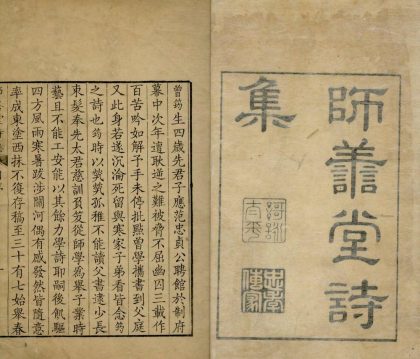 師譱堂詩
集
忠孝傳家
曾筠生四歲先君子應范忠貞公聘館於制府
幕中次年遭耿逆之難被脅不屈幽囚三載作
百苦吟如解子手未停批點曾學攜書到父庭
又此身若遂沉淪死留與寒家子弟看皆念筠
之詩也筠時以煢煢孤稚不能讀父書逮少長
束髮奉先太君慈訓負笈從師學為舉子業時
藝且不能工安能以其餘力學詩耶嗣後飢驅
四方風雨寒暑跋涉關河偶有感發然皆隨意
率成東塗西抹不復存稿至三十有七始舉春